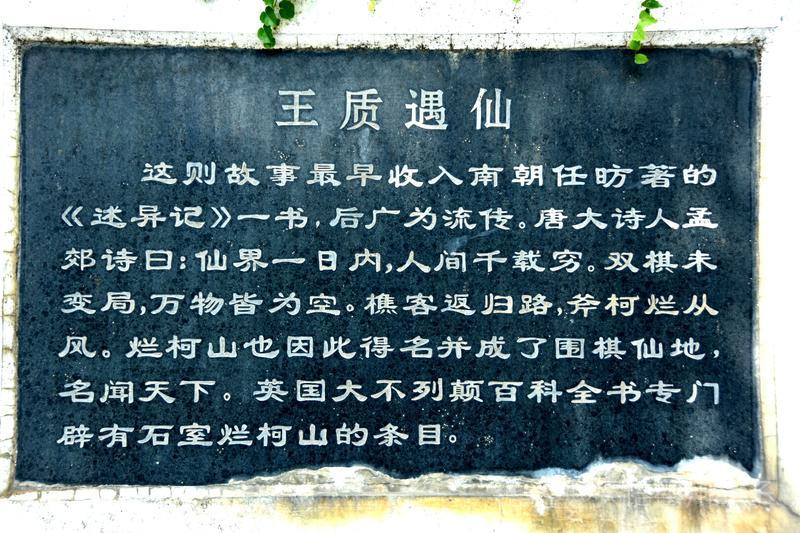 王质遇仙
这则故事最早收入南朝任昉著的
《述异记》一书，后广为流传。唐大诗人孟
郊诗曰：仙界一日内，人间千载穷。双棋未
变局，万物皆为空。樵客返归路，斧柯烂从
风。烂柯山也因此得名并成了围棋仙地，
名闻天下。英国大不列颠百科全书专门
辟有石室烂柯山的条目。